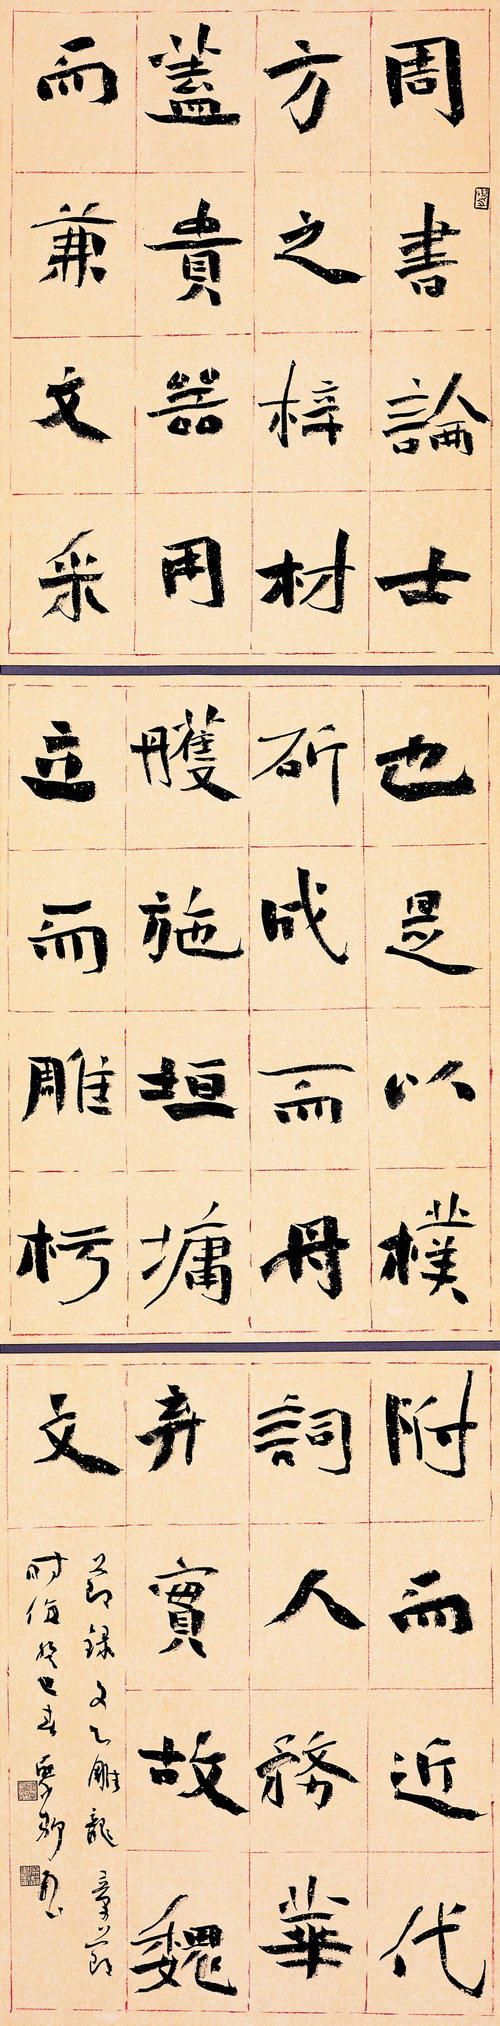 周書論士
方之梓材
蓋貴器用
而兼文采
也是以樸
斫成而丹
雘施垣墉
立而雕杇
附而近代
詞人務華
弃實故魏
文
節録文心雕龍章節
时值癸巳春